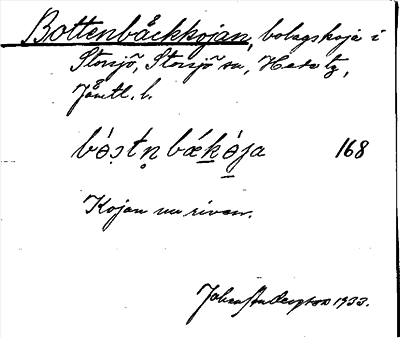 Bottenbäckkojan, bolagskoja i
Storsjö, Storsjö sn, Herö tg,
Jämtl. l.
bǫ́stn̥bækója 168
Kojan nu riven.
Johan Anderson 1933.